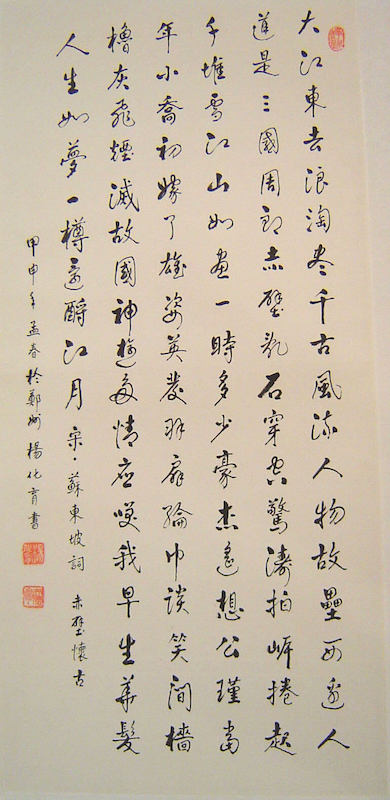 大江東去浪淘盡千古風流人物故壘西邊人
道是三國周郎赤壁亂石穿空驚濤拍岸捲起
千堆雪江山如畫一時多少豪杰遙想公瑾當
年小喬初嫁了雄姿英發羽扇綸巾談笑間檣
櫓灰飛煙滅故國神遊多情應咲我早生華髮
人生如夢一樽還酹江月 宋·蘇東坡詞 赤壁懷古
甲申年孟春於鄭州楊化育書